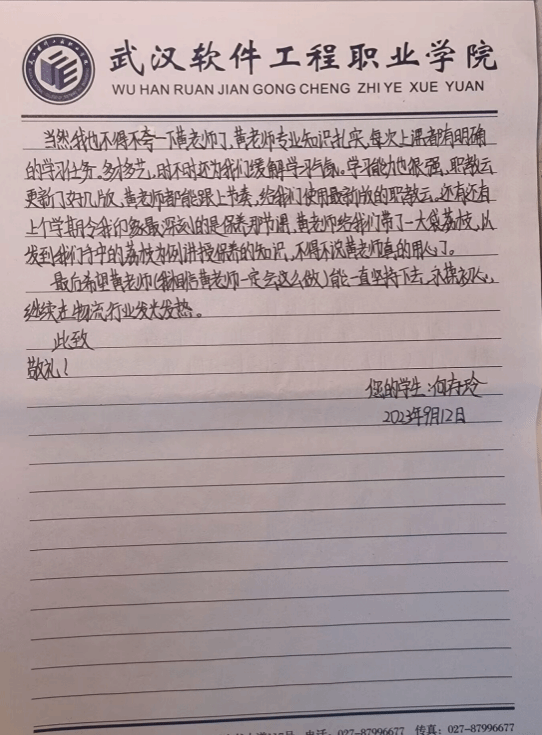 武汉软件工程职业学院
WU HAN RUAN JIAN GONG CHENG ZHI YE XUE YUAN
当然,我也不得不夸一下黄老师了,黄老师专业知识扎实,每次上课都有明确
的学习任务,多才多艺,时不时还为我们缓解学习气氛。学习能力也很强,职教云
更新了好几版,黄老师都能跟上节奏,给我们使用最新版的职教云。还有还有
上个学期令我印象最深刻的是保养那节课,黄老师给我们带了一大袋荔枝,以
发到我们手中的荔枝为例讲授保养的知识,不得不说黄老师真的用心了。
最后希望黄老师(我相信黄老师一定会这么做)能一直坚持下去,永操初心,
继续在物流行业发光发热。
此致
敬礼!
您的学生:何存玲
2023年9月12日
电话:027-87996677 传真:027-87996677